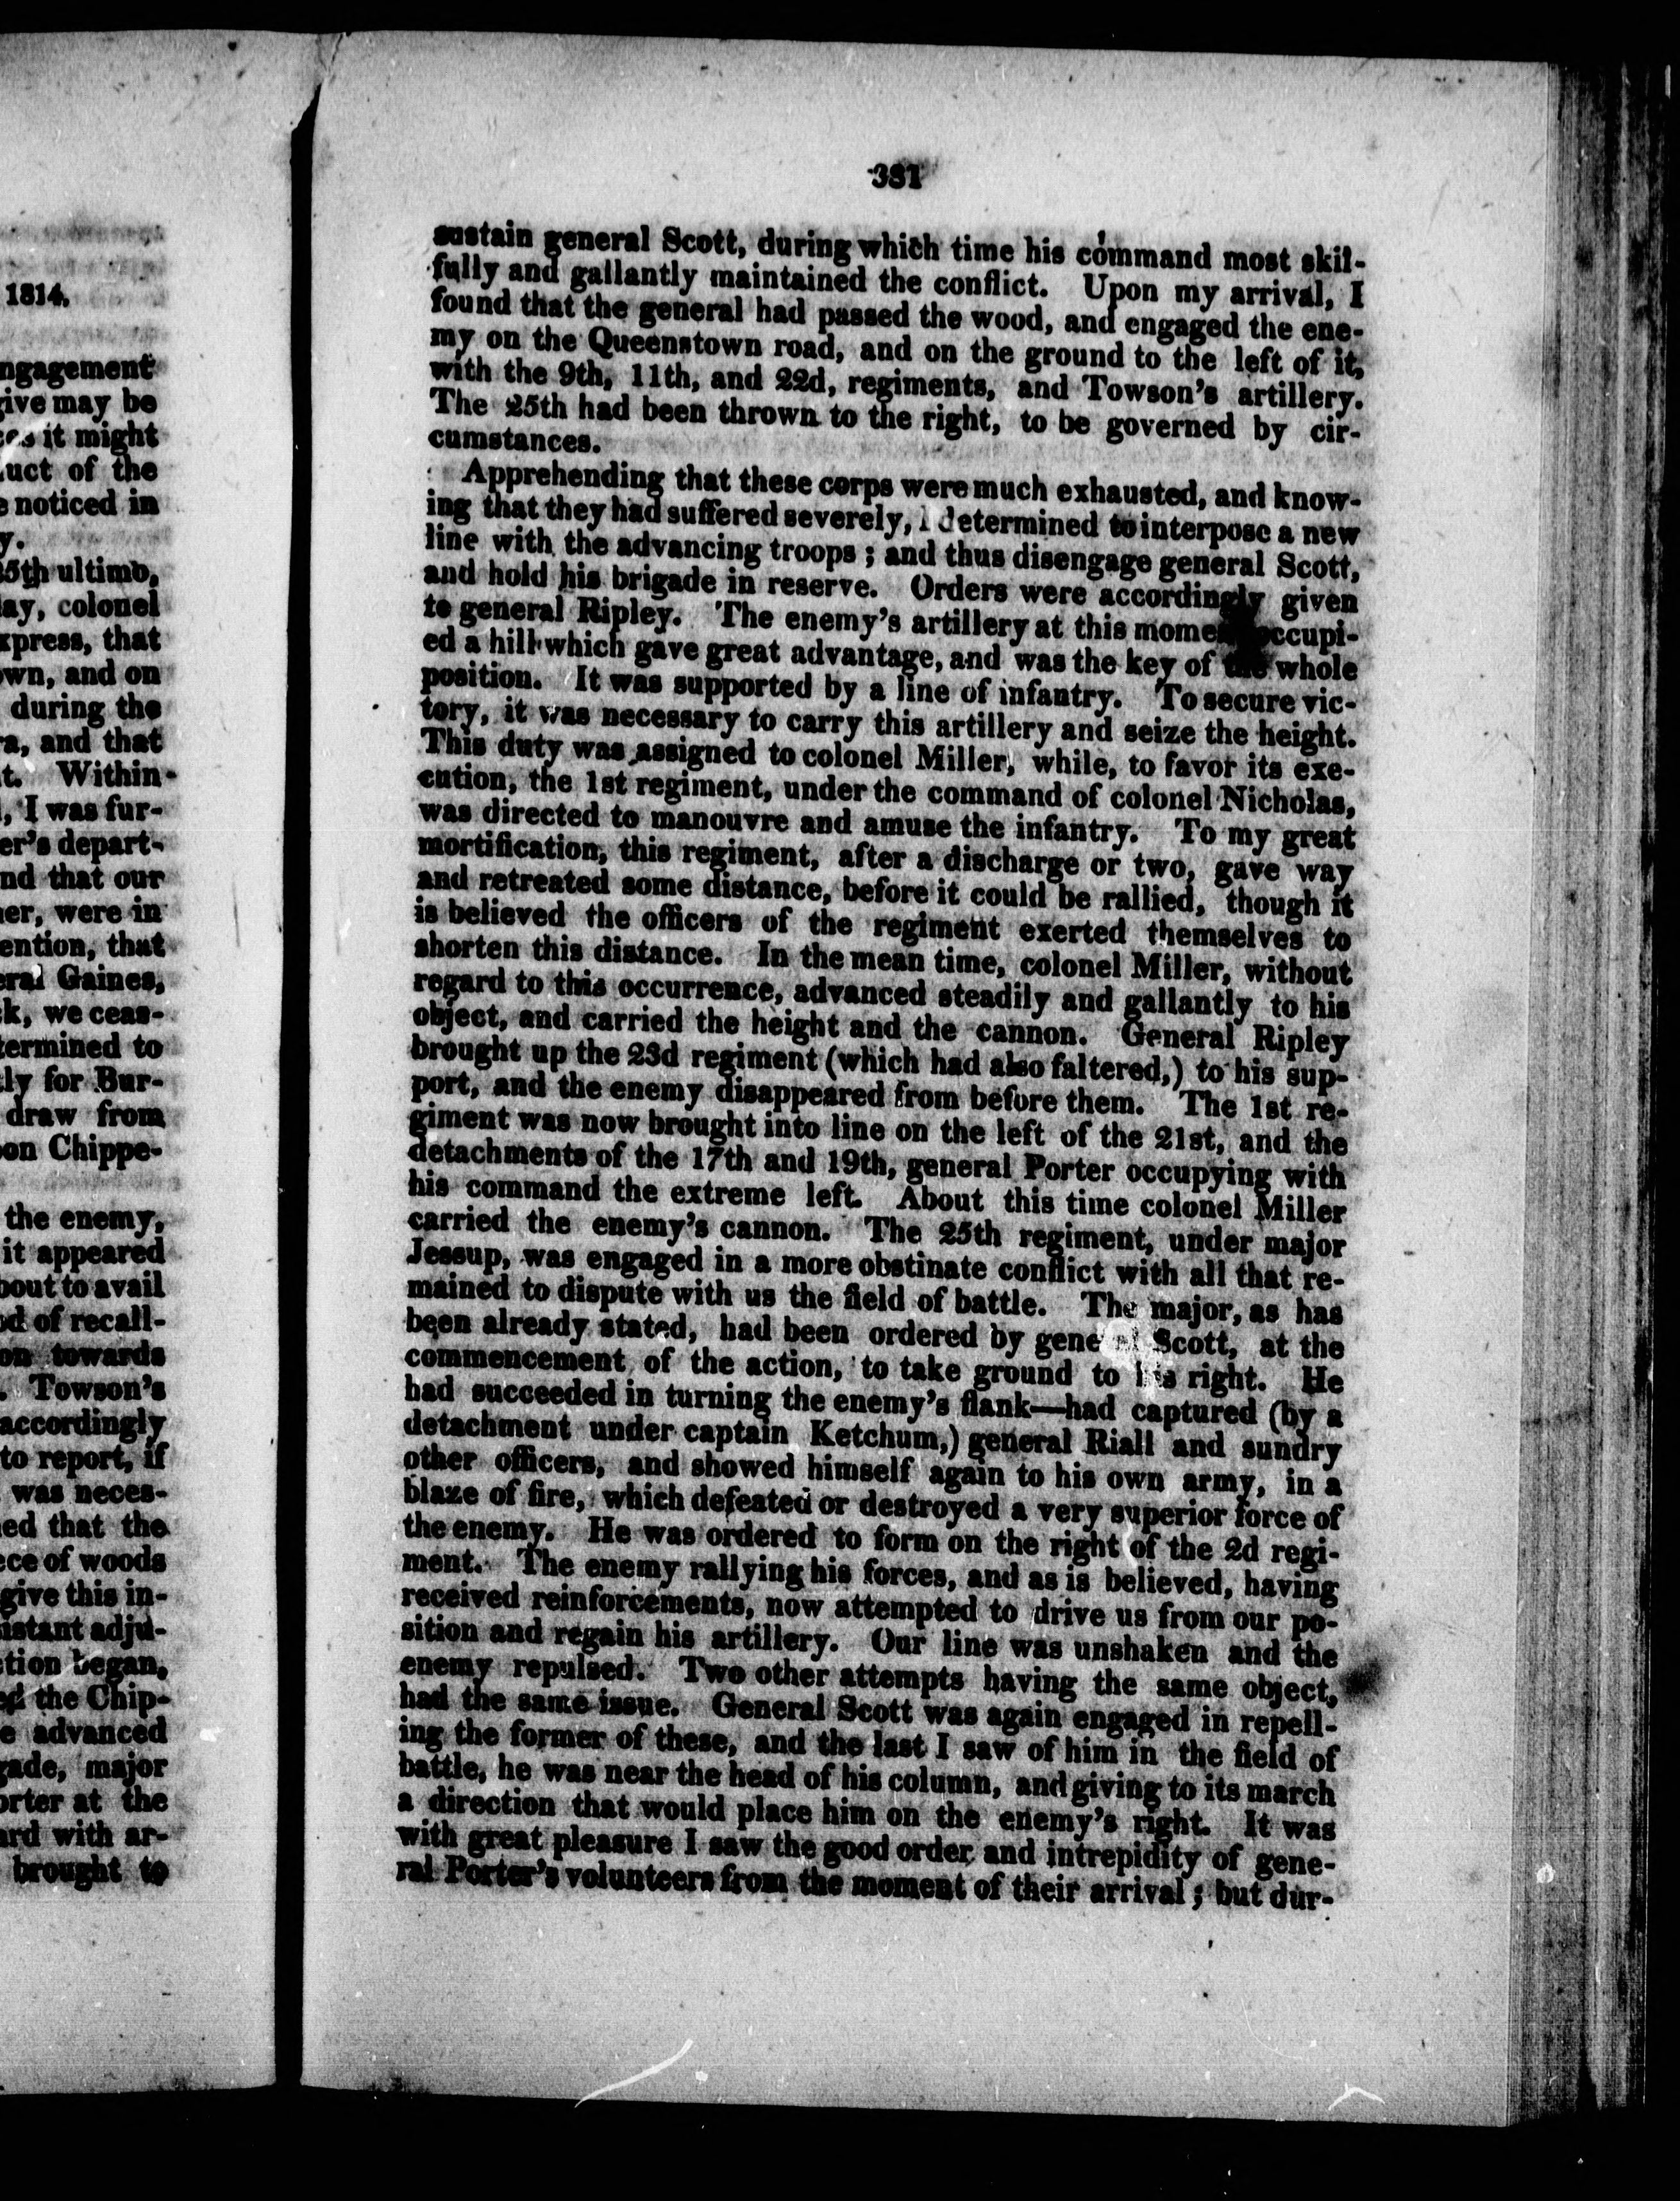 1814.
ngagement
give may be
it might
uct of the
e noticed in
y.
5th ultimo,
lay, colonel
xpress, that
own, and on
during the
ra, and that
t. Within
, I was fur-
er's depart-
nd that our
ner, were in
ention, that
eral Gaines,
k, we ceas-
termined to
ly for Bur-
draw from
on Chippe-
the enemy,
it appeared
bout to avail
od of recall-
on towards
. Towson's
accordingly
to report, if
was neces-
ed that the
ce of woods
give this in-
istant adju-
tion began,
ed the Chip-
e advanced
gade, major
orter at the
ard with ar-
brought to
381
sustain general Scott, during which time his command most skil-
fully and gallantly maintained the conflict. Upon my arrival, I
found that the general had passed the wood, and engaged the ene-
my on the Queenstown road, and on the ground to the left of it,
with the 9th, 11th, and 22d, regiments, and Towson's artillery.
The 25th had been thrown to the right, to be governed by cir-
cumstances.
Apprehending that these corps were much exhausted, and know-
ing that they had suffered severely, I determined to interpose a new
line with the advancing troops; and thus disengage general Scott,
and hold his brigade in reserve. Orders were accordingly given
to general Ripley. The enemy's artillery at this moment occupi-
ed a hill which gave great advantage, and was the key of the whole
position. It was supported by a line of infantry. To secure vic-
tory, it was necessary to carry this artillery and seize the height.
This duty was assigned to colonel Miller, while, to favor its exe-
cution, the 1st regiment, under the command of colonel Nicholas,
was directed to manouvre and amuse the infantry. To my great
mortification, this regiment, after a discharge or two, gave way
and retreated some distance, before it could be rallied, though it
is believed the officers of the regiment exerted themselves to
shorten this distance. In the mean time, colonel Miller, without
regard to this occurrence, advanced steadily and gallantly to his
object, and carried the height and the cannon. General Ripley
brought up the 23d regiment (which had also faltered,) to his sup-
port, and the enemy disappeared from before them. The 1st re-
giment was now brought into line on the left of the 21st, and the
detachments of the 17th and 19th, general Porter occupying with
his command the extreme left. About this time colonel Miller
carried the enemy's cannon. The 25th regiment, under major
Jessup, was engaged in a more obstinate conflict with all that re-
mained to dispute with us the field of battle. The major, as has
been already stated, had been ordered by general Scott, at the
commencement of the action, to take ground to his right. He
had succeeded in turning the enemy's flank—had captured (by a
detachment under captain Ketchum,) general Riall and sundry
other officers, and showed himself again to his own army, in a
blaze of fire, which defeated or destroyed a very superior force of
the enemy. He was ordered to form on the right of the 2d regi-
ment. The enemy rallying his forces, and as is believed, having
received reinforcements, now attempted to drive us from our po-
sition and regain his artillery. Our line was unshaken and the
enemy repulsed. Two other attempts having the same object,
had the same issue. General Scott was again engaged in repell-
ing the former of these, and the last I saw of him in the field of
battle, he was near the head of his column, and giving to its march
a direction that would place him on the enemy's right. It was
with great pleasure I saw the good order and intrepidity of gene-
ral Porter's volunteers from the moment of their arrival; but dur-